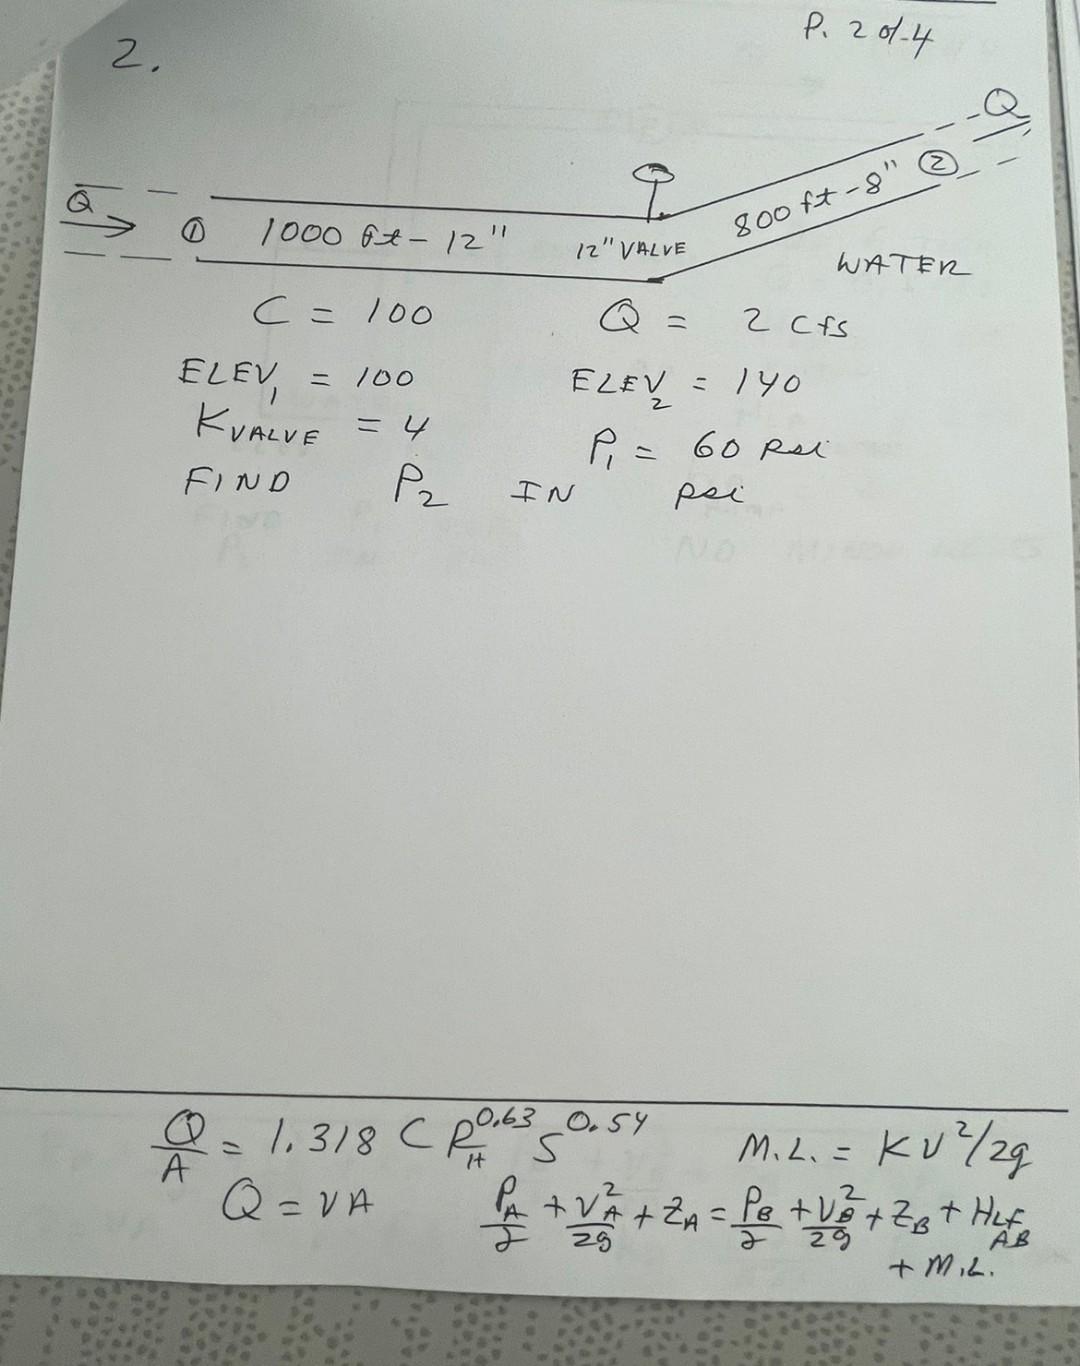 P. 2 of 4
2.
Q
Q
① 1000 ft - 12" 12" VALVE 800 ft - 8" ②
WATER
C = 100 Q = 2 cfs
ELEV₁ = 100 ELEV₂ = 140
K_VALVE = 4 P₁ = 60 psi
FIND P₂ IN psi
Q/A = 1.318 C R_H^0.63 S^0.54 M.L. = KV²/2g
Q = VA P_A/γ + V_A²/2g + Z_A = P_B/γ + V_B²/2g + Z_B + HLf_AB
+ M.L.